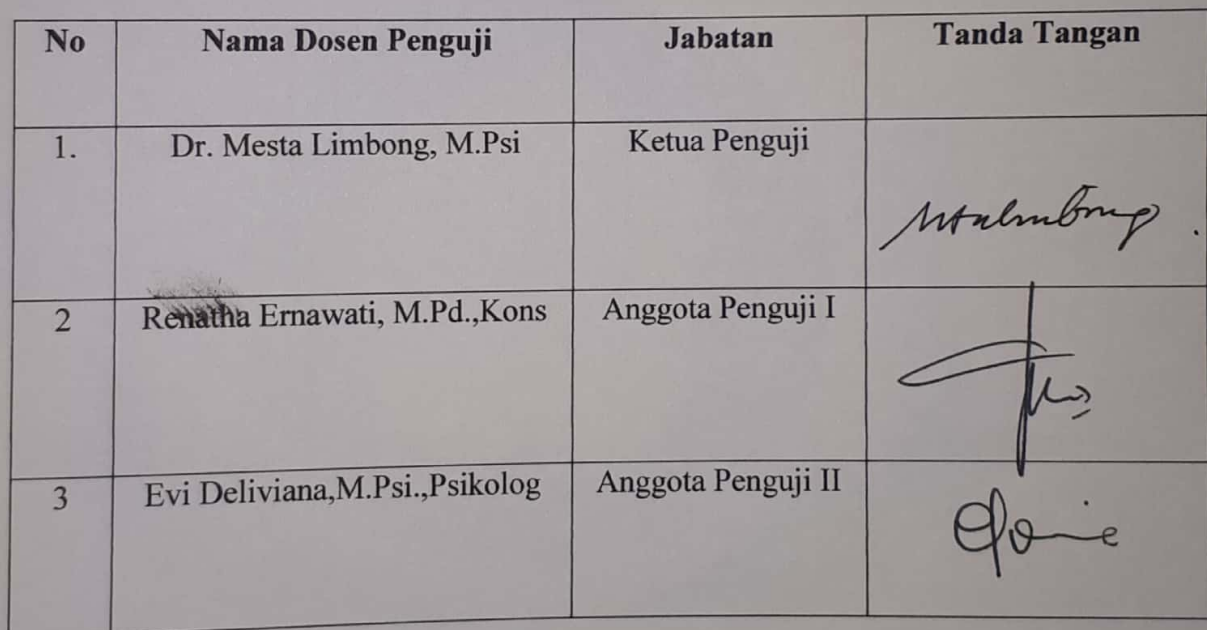 No Nama Dosen Penguji Jabatan Tanda Tangan
1. Dr. Mesta Limbong, M.Psi Ketua Penguji
2 Renatha Ernawati, M.Pd.,Kons Anggota Penguji I
3 Evi Deliviana,M.Psi.,Psikolog Anggota Penguji II